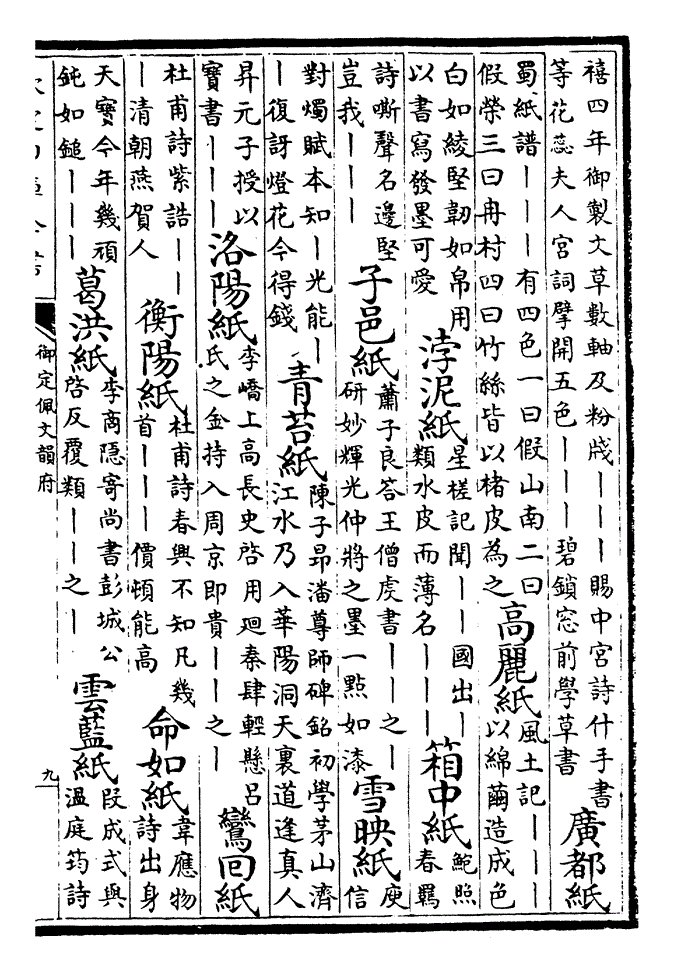 禧四年御製文草數軸及粉牋｜｜｜賜中宮詩什手書
等花蕊夫人宮詞擘開五色｜｜｜碧鎖窓前學草書
廣都紙
蜀紙譜｜｜｜有四色一曰假山南二曰
假榮三曰冉村四曰竹絲皆以楮皮為之
高麗紙
風土記｜｜｜
以綿繭造成色
白如綾堅韌如帛用
以書寫發墨可愛
浡泥紙
星槎記聞｜｜國出｜
類水皮而薄名｜｜｜
箱中紙
鮑照
春羈
詩嘶聲名邊堅
豈我｜｜｜
子邑紙
蕭子良答王僧虔書｜｜之｜
研妙輝光仲將之墨一點如漆
雪映紙
庾
信
對燭賦本知｜光能｜
｜復訝燈花今得錢
青苔紙
陳子昻潘尊師碑銘初學茅山濟
江水乃入華陽洞天裏道逢真人
昇元子授以
寶書｜｜｜
洛陽紙
李嶠上高長史啓用廻秦肆輕懸呂
氏之金持入周京即貴｜｜之｜
鸞回紙
杜甫詩紫誥｜｜
｜清朝燕賀人
衡陽紙
杜甫詩春興不知凡幾
首｜｜｜價頓能高
命如紙
韋應物
詩出身
天寶今年幾頑
鈍如鎚｜｜｜
葛洪紙
李商隱寄尚書彭城公
啓反覆類｜｜之｜
雲藍紙
段成式與
溫庭筠詩
御定佩文韻府
九